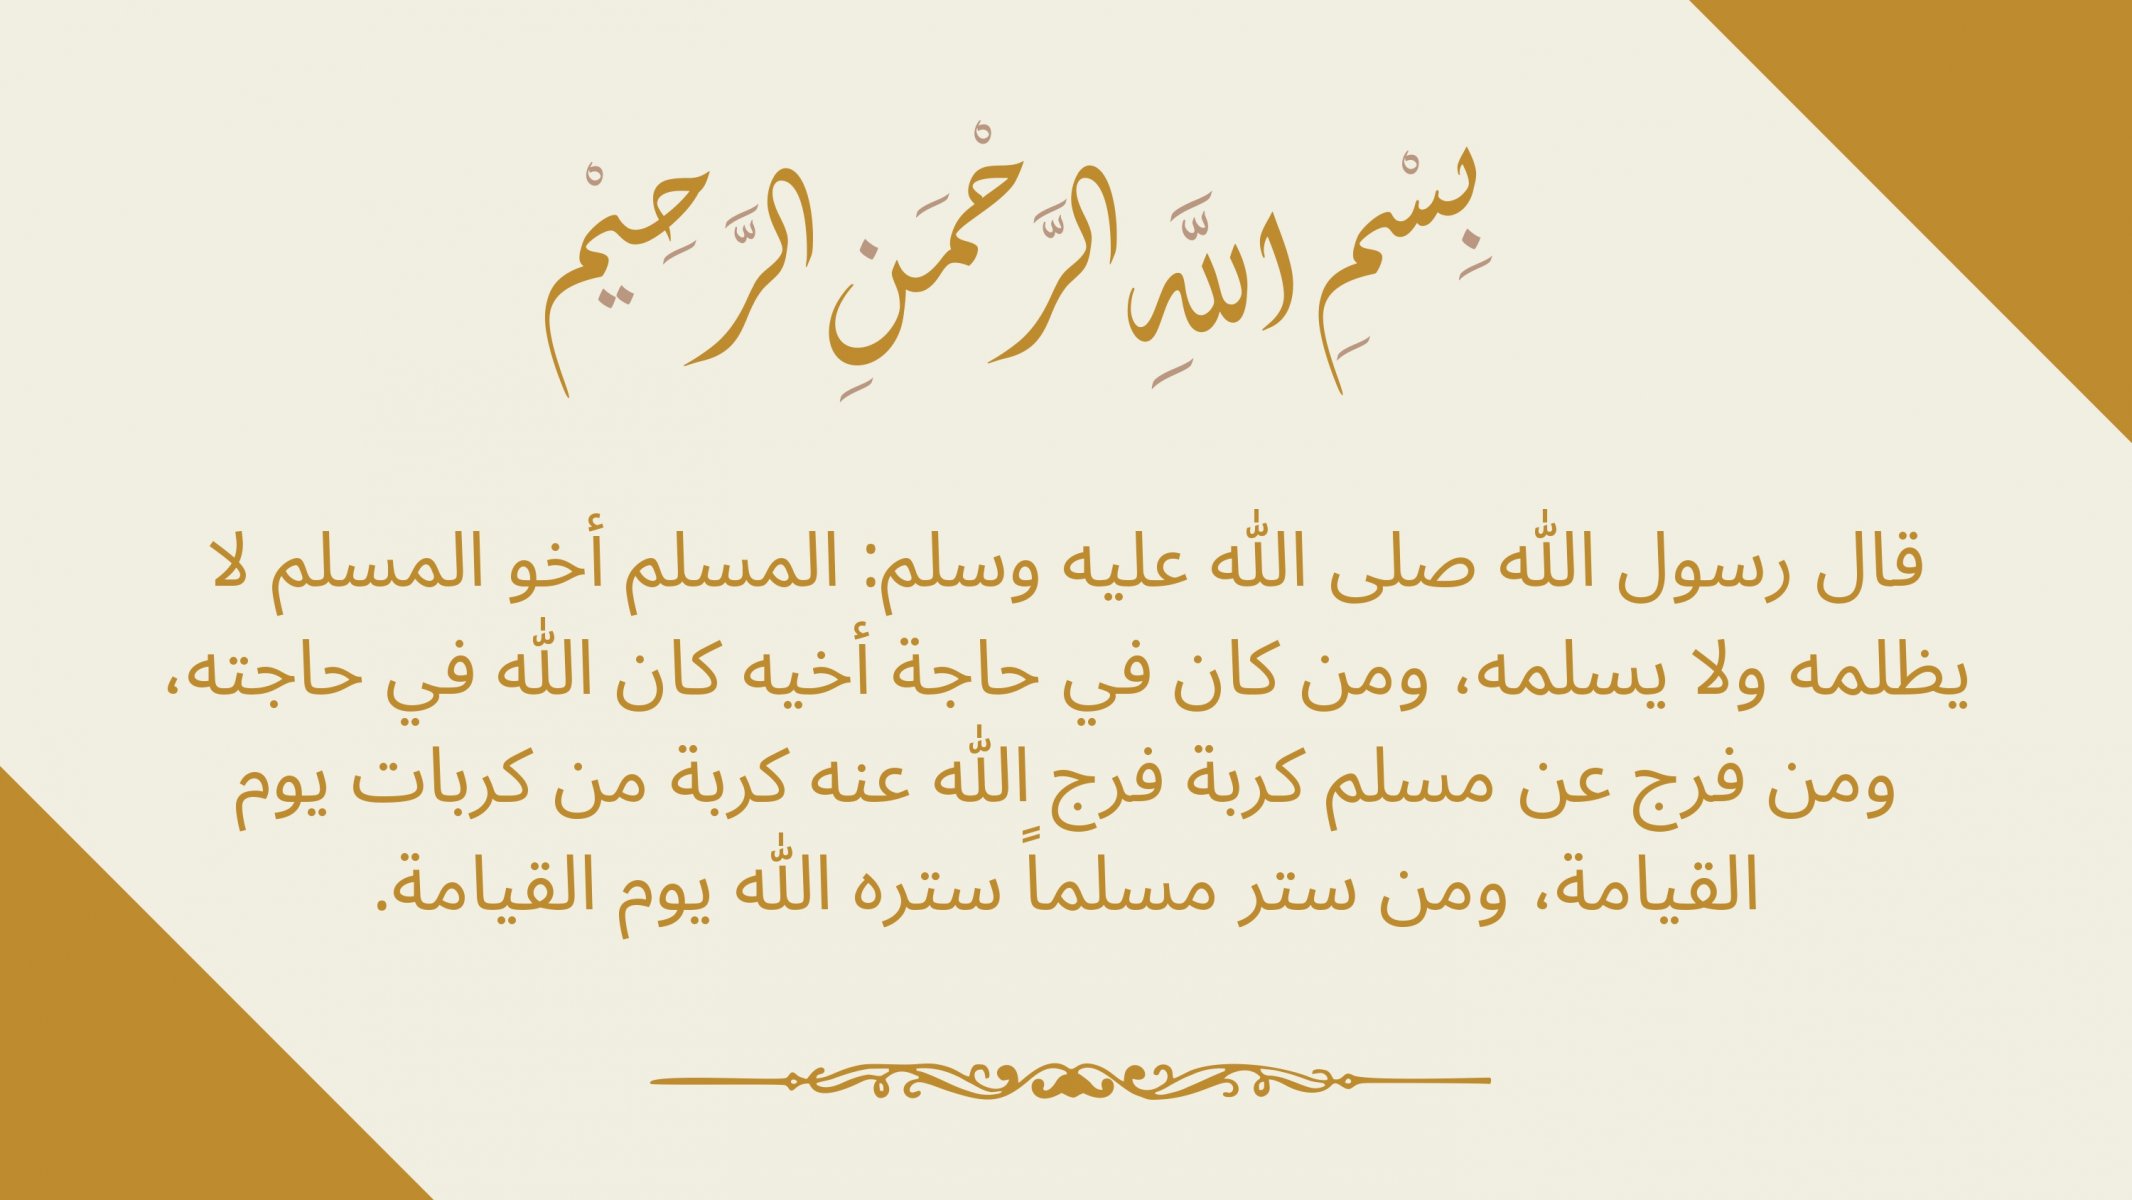 بِسْمِ اللَّهِ الرَّحْمَنِ الرَّحِيْمِ
قال رسول الله صلى الله عليه وسلم: المسلم أخو المسلم لا
يظلمه ولا يسلمه، ومن كان في حاجة أخيه كان الله في حاجته،
ومن فرج عن مسلم كربة فرج الله عنه كربة من كربات يوم
القيامة، ومن ستر مسلماً ستره الله يوم القيامة.